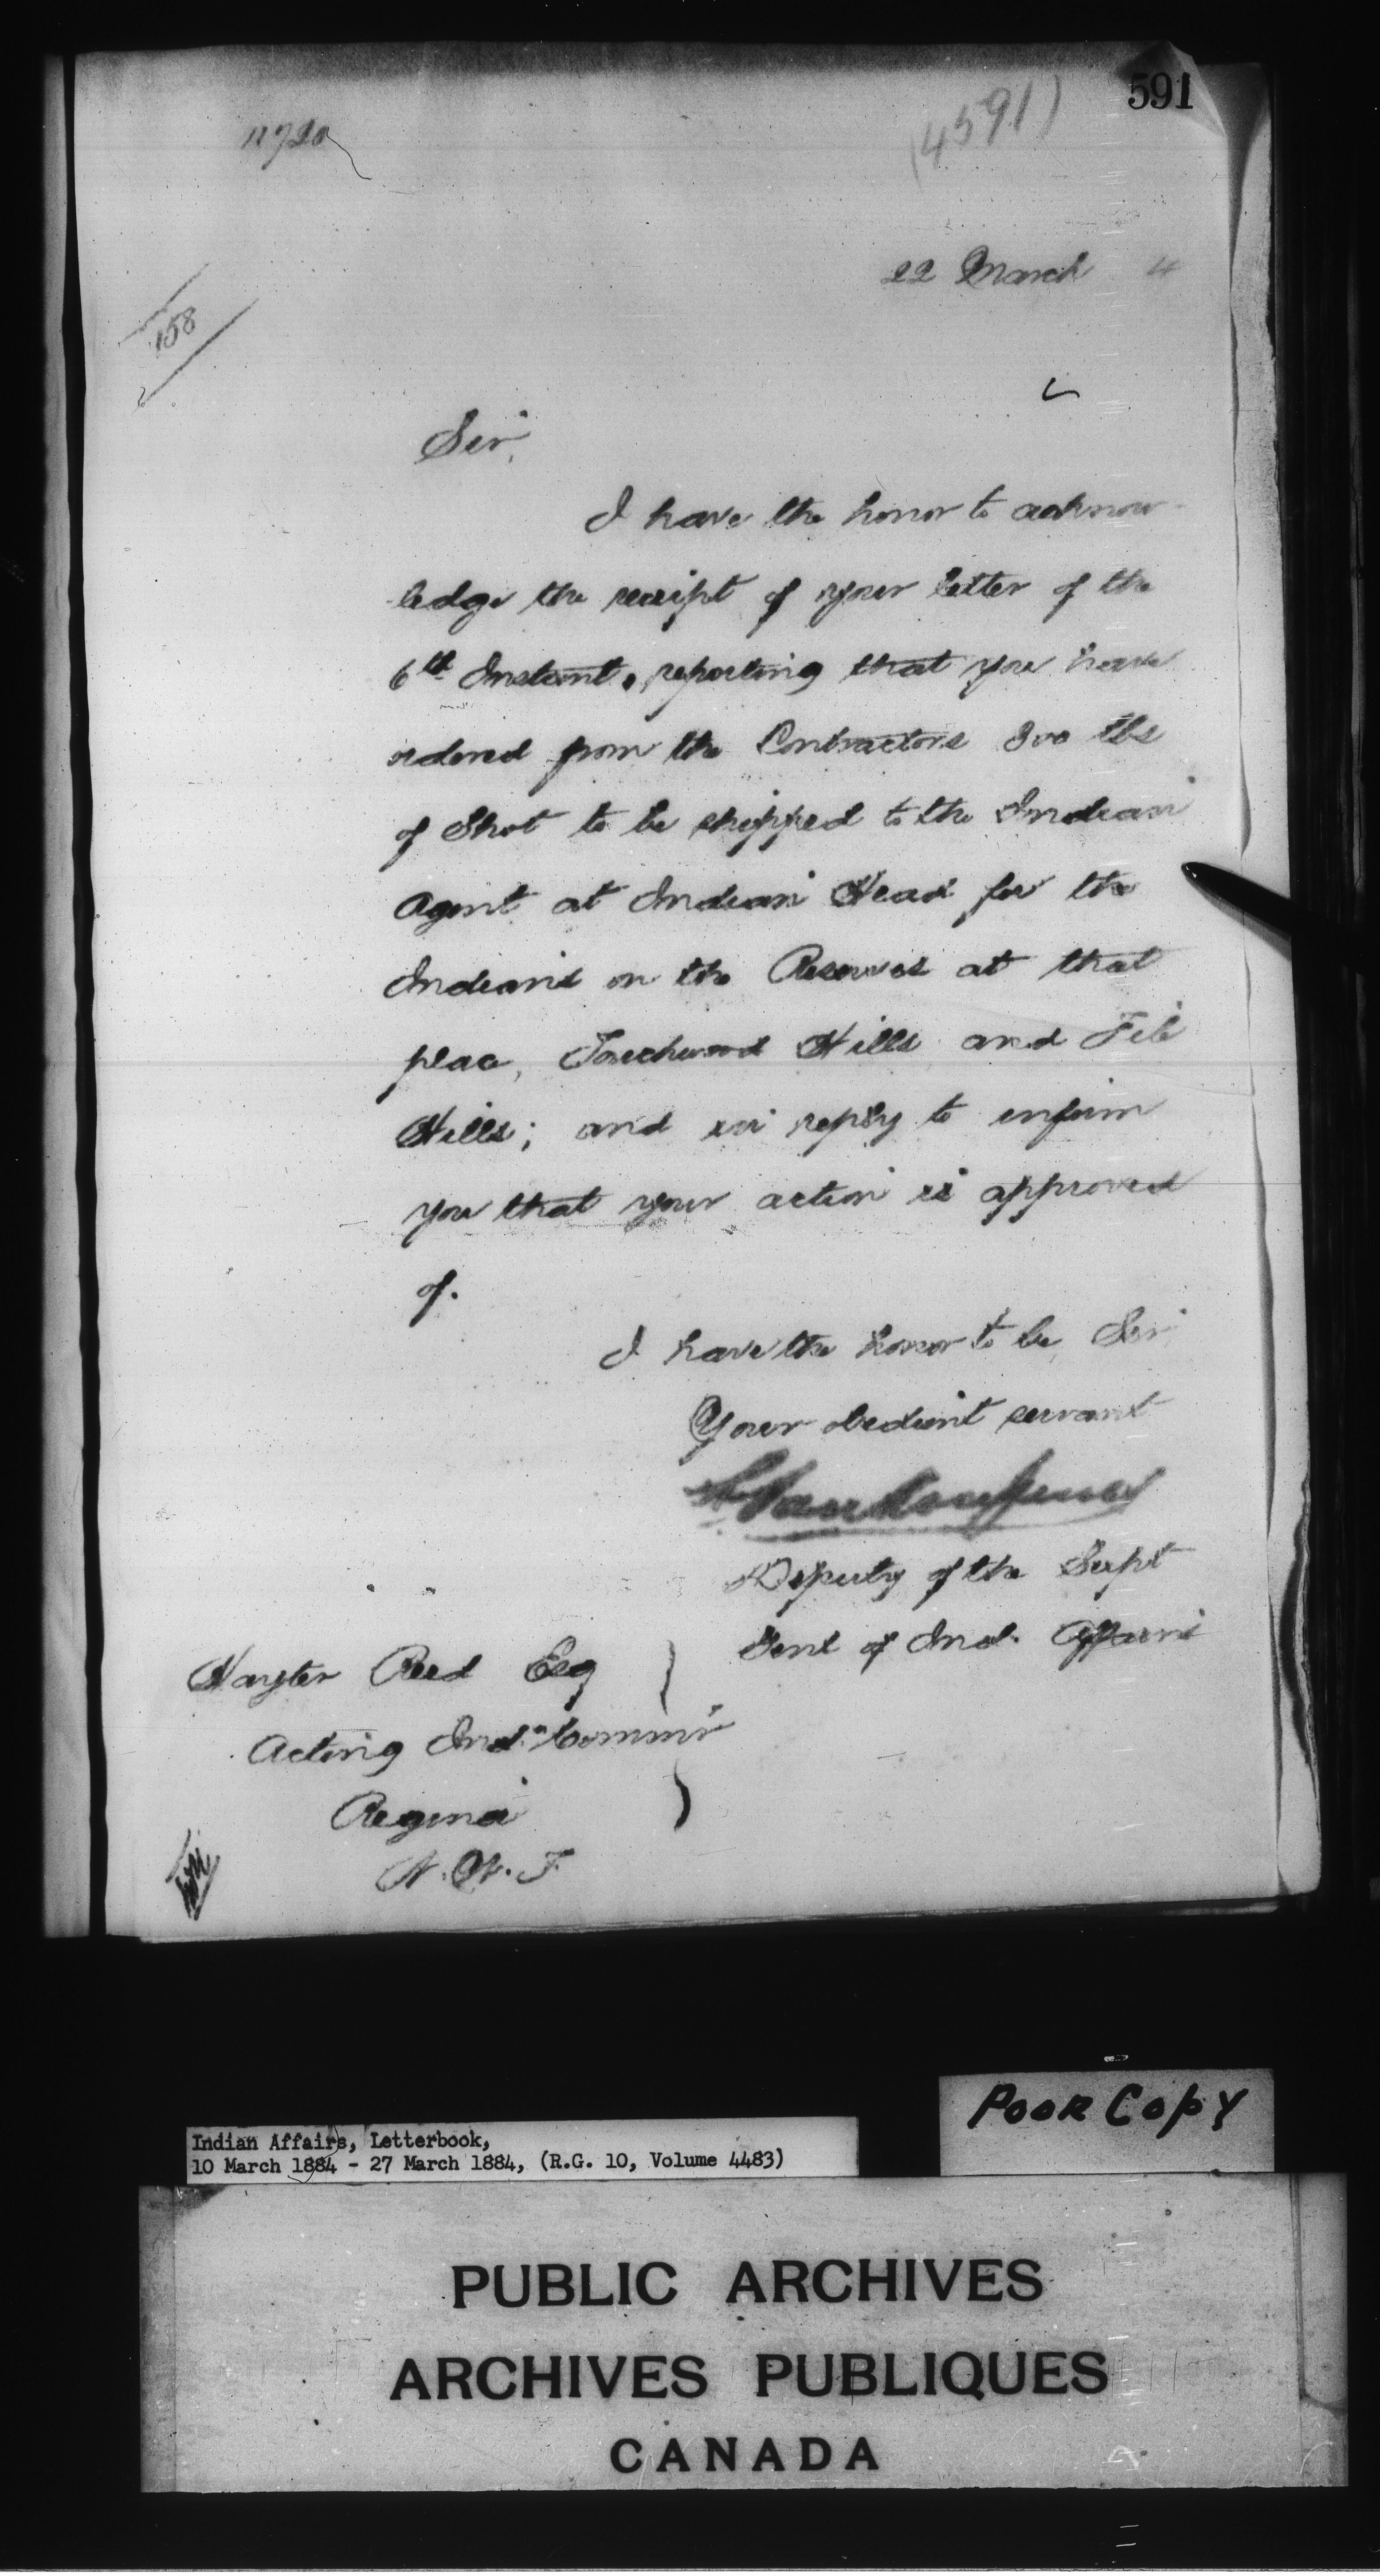 591
(4591)
11720
22 March 4
158
Sir,
I have the honor to acknow-
ledge the receipt of your letter of the
6th Instant, reporting that you have
ordered from the Contractors 300 lbs
of Shot to be shipped to the Indian
Agent at Indian Head for the
Indians on the Reserves at that
place, Touchwood Hills and File
Hills; and in reply to inform
you that your action is approved
of.
I have the honor to be, Sir
Your obedient servant
L Vankoughnet
Deputy of the Supt
Genl of Ind. Affairs
Hayter Reed Esq
Acting Indn Commr
Regina
N. W. T
Poor Copy
Indian Affairs, Letterbook,
10 March 1884 - 27 March 1884, (R.G. 10, Volume 4483)
PUBLIC ARCHIVES
ARCHIVES PUBLIQUES
CANADA